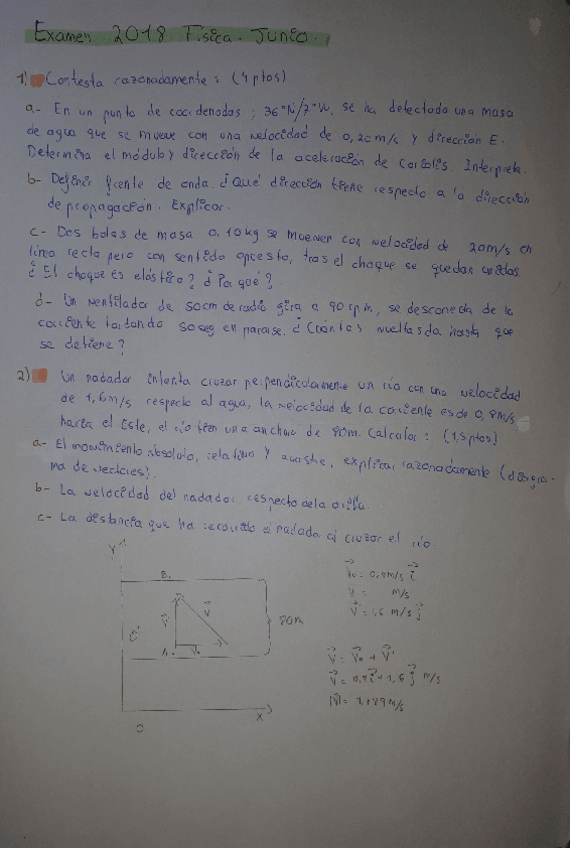 Examen 2018 Física. Junio.
1) Contesta razonadamente: (4 ptos)
a- En un punto de coordenadas; 36°N/7°W, se ha detectado una masa
de agua que se mueve con una velocidad de 0,20 m/s y dirección E.
Determina el módulo y dirección de la aceleración de Coriolis. Interpreta.
b- Definir frente de onda. ¿Qué dirección tiene respecto a la dirección
de propagación. Explicar.
c- Dos bolas de masa 0,10 kg se mueven con velocidad de 20 m/s en
línea recta pero con sentido opuesto, tras el choque se quedan unidas
¿El choque es elástico? ¿Por qué?
d- Un ventilador de 50cm de radio gira a 90 rpm, se desconecta de la
corriente tardando 50 seg en pararse. ¿Cuántas vueltas da hasta que
se detiene?
2) Un nadador intenta cruzar perpendicularmente un río con una velocidad
de 1,6 m/s respecto al agua, la velocidad de la corriente es de 0,8 m/s
hacia el Este, el río tiene una anchura de 80m. Calcular: (1,5 ptos)
a- El movimiento absoluto, relativo y arrastre, explicar razonadamente (diagra-
ma de vectores).
b- La velocidad del nadador respecto de la orilla.
c- La distancia que ha recorrido el nadador al cruzar el río.
Y
B.
V'
V
80m
O'
A.
V₀
X
O
V₀ = 0,8 m/s i
m/s
V' = 1,6 m/s j
V = V₀ + V'
V = 0,8 i + 1,6 j m/s
|V| = 1,79 m/s